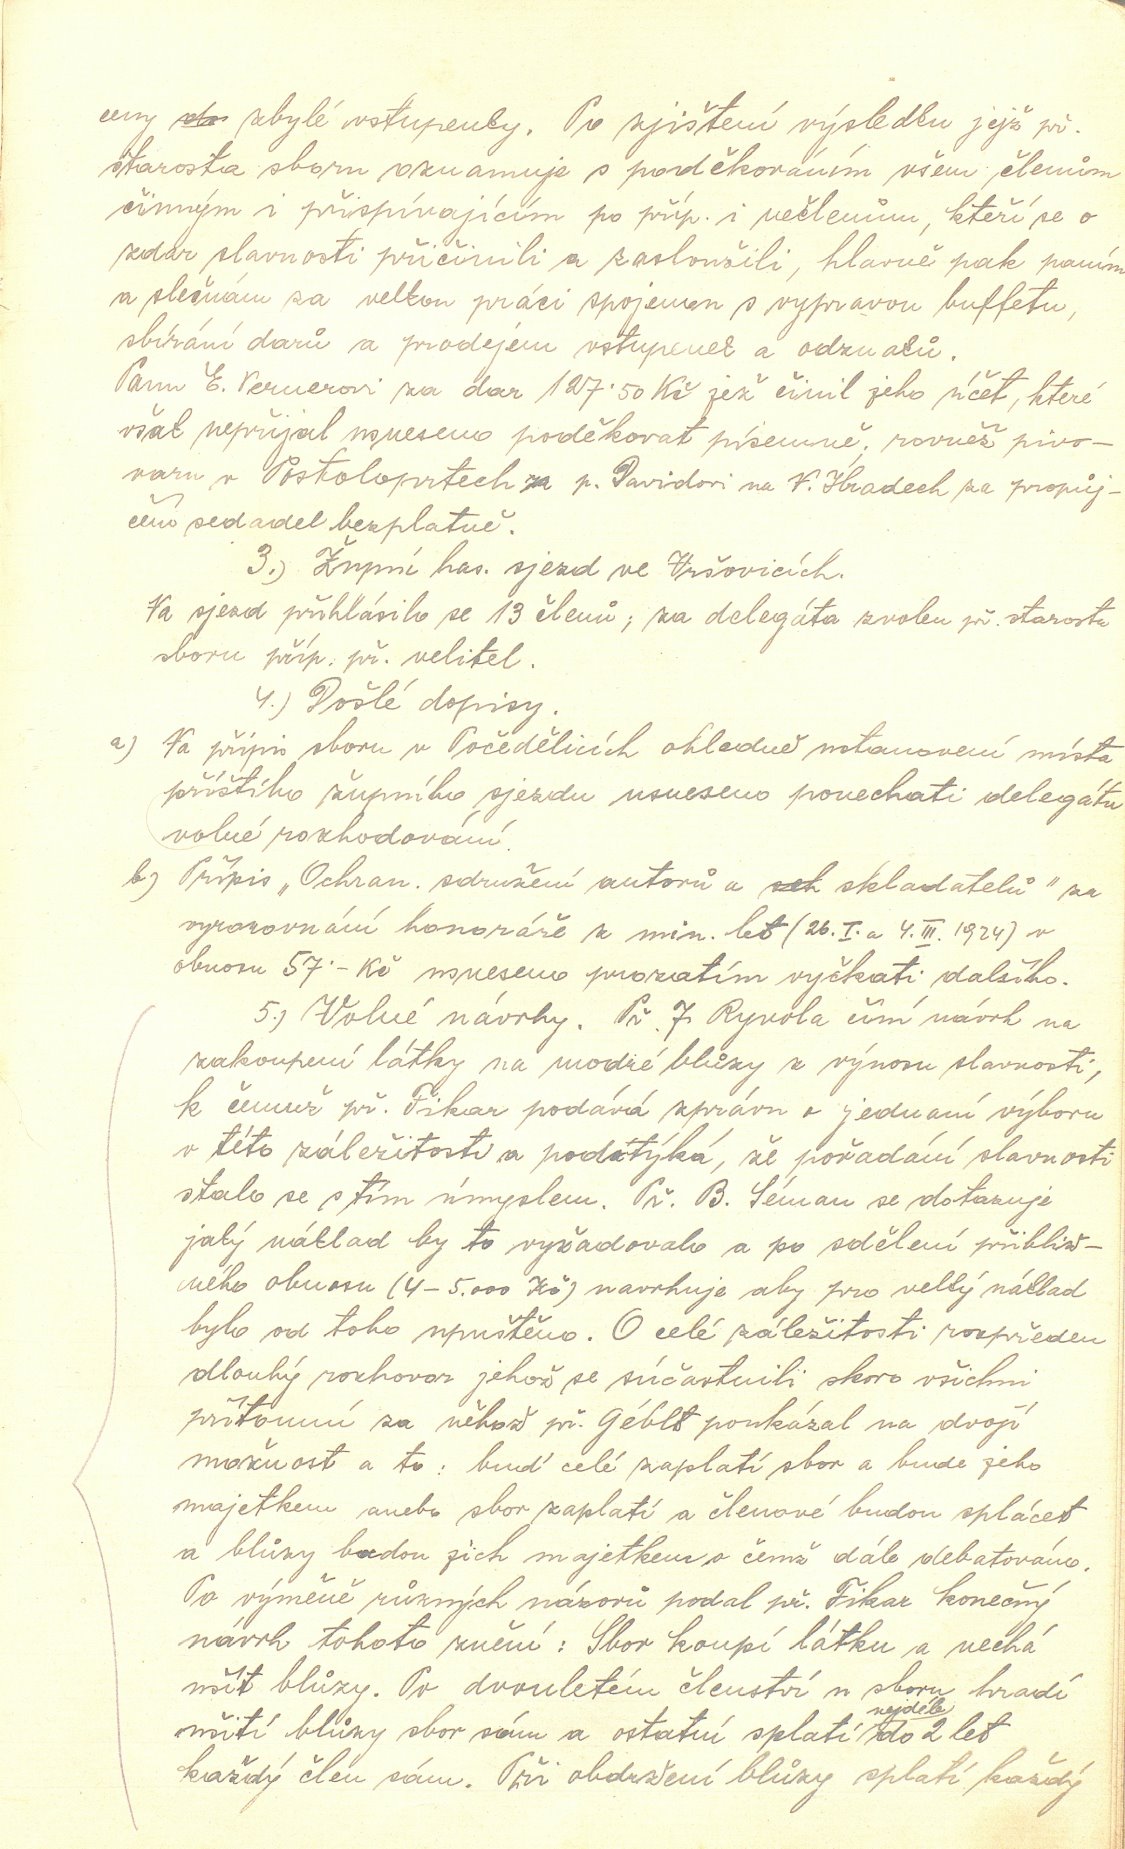 ceny do zbylé vstupenky. Po zjištení výsledku jejž př.
starosta sboru oznamuje s poděkováním všem členům
činným i přispívajícím po příp. i nečlenům, kteří se o
zdar slavnosti přičinili a zasloužili, hlavně pak paním
a slečnám za velkou práci spojenou s výpravou buffetu,
sbírání darů a prodejem vstupenek a odznaků.
Panu E. Vernerovi za dar 127.50 Kč jež činil jeho účet, které
však nepřijal usneseno poděkovat písemně, rovněž pivo-
varu v Postoloprtech za p. Davidovi na N. Hradech za propůj-
čení sedadel bezplatně.
3.) Župní has. sjezd ve Vršovicích.
Na sjezd přihlásilo se 13 členů; za delegáta zvolen př. starosta
sboru příp. př. velitel.
4.) Došlé dopisy.
a) Na přípis sboru v Počedělicích ohledně ustanovení místa
příštího župního sjezdu usneseno ponechati delegátu
volné rozhodování.
b) Přípis „Ochran. sdružení autorů a skladatelů" za
vyrovnání honoráře z min. let (26. I. a 4. III. 1924) v
obnosu 57.- Kč usneseno prozatím vyčkati dalšího.
5.) Volné návrhy. Př. J. Ryvola činí návrh na
zakoupení látky na modré blůzy z výnosu slavnosti,
k čemuž př. Fikar podává zprávu o jednaní výboru
v této záležitosti a podotýká, že pořadání slavnosti
stalo se s tím úmyslem. Př. B. Léman se dotazuje
jaký náklad by to vyžadovalo a po sdělení přibliž-
ného obnosu (4-5.000 Kč) navrhuje aby pro velký náklad
bylo od toho upuštěno. O celé záležitosti rozpředen
dlouhý rozhovor jehož se súčastnili skoro všichni
přítomní za něhož př. Géblt poukázal na dvojí
možnost a to: buď celé zaplatí sbor a bude jeho
majetkem anebo sbor zaplatí a členové budou splácet
a blůzy budou jich majetkem o čemž dále debatováno.
Po výměně různých názorů podal př. Fikar konečný
návrh tohoto znění: Sbor koupí látku a nechá
ušít blůzy. Po dvouletém členství u sboru hradí
ušití blůzy sbor sám a ostatní splatí nejdéle do 2 let
každý člen sám. Při obdržení blůzy splatí každý